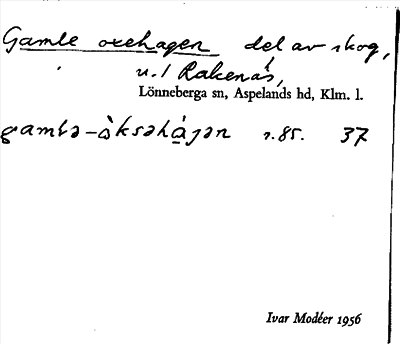 Gamle oxehagen del av skog,
u. l Rakenäs,
Lönneberga sn, Aspelands hd, Klm. l.
gamlə-òksəhàgən s. 85. 37
Ivar Modéer 1956